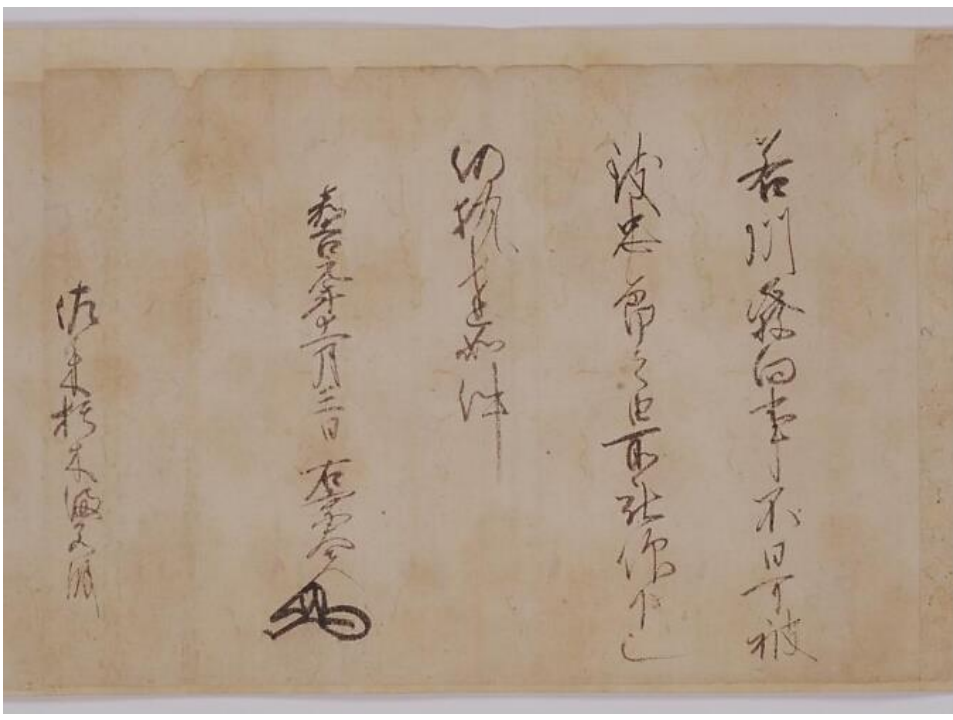 若州發向事不日可被
致忠節之由所被仰下也
仍執達如件
嘉吉元年十 月 日 右京大夫
佐々木朽木 殿